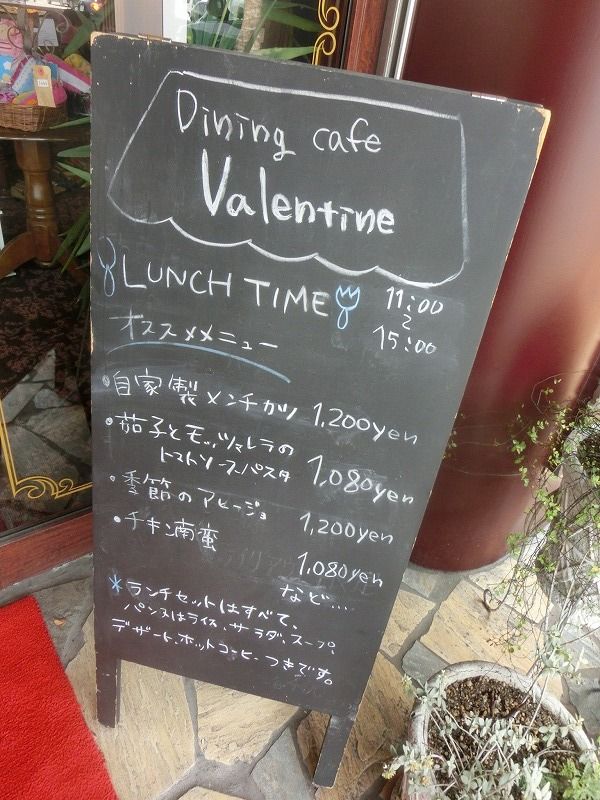 Dining cafe
Valentine
LUNCH TIME 11:00
〜
15:00
オススメメニュー
•自家製メンチカツ 1,200yen
•茄子とモッツァレラの
トマトソースパスタ 1,080yen
•季節のアヒージョ 1,200yen
•チキン南蛮 1,080yen
など....
*ランチセットはすべて、
パン又はライス、サラダ、スープ、
デザート、ホットコーヒーつきです。